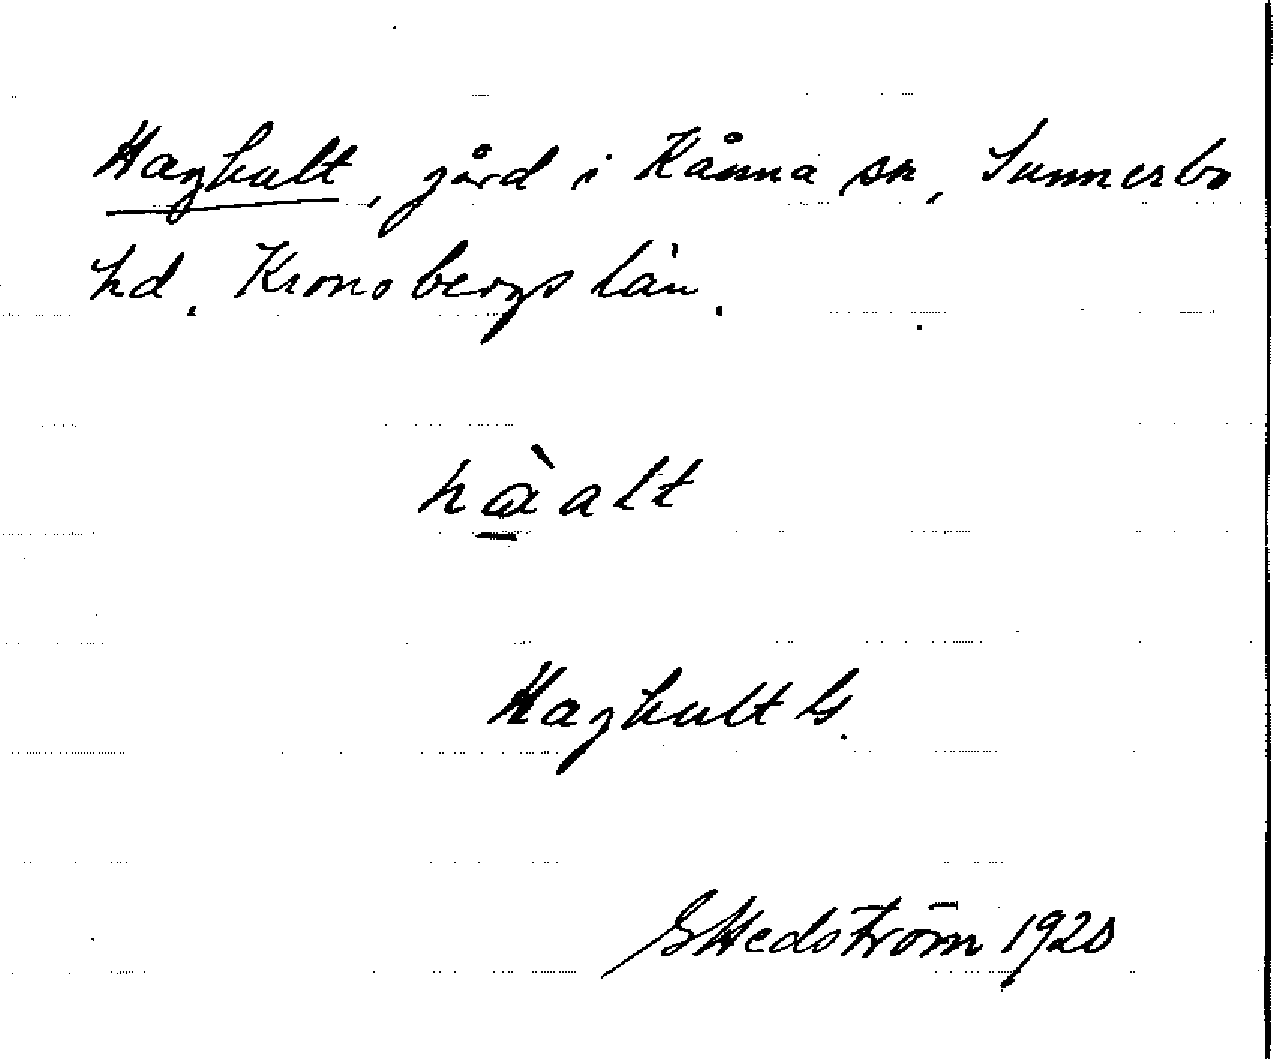 Haghult, gård i Kånna sn, Sunnerbo
hd. Kronobergs län.
hàalt
Haghult G.
G Hedström 1920